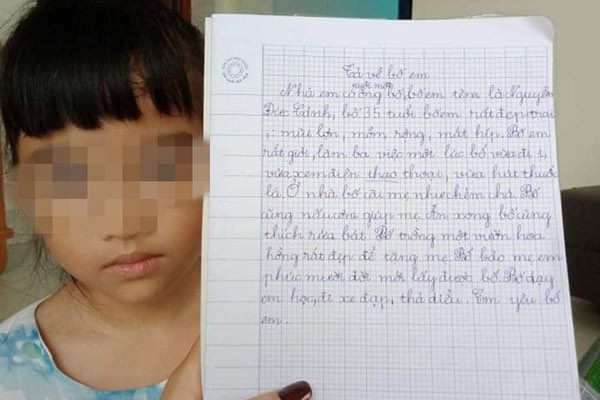 Tả về bố em
Nhà em có ông bố, bố em tên là Nguyễn
nuôi một
Đức Cảnh, bố 35 tuổi bố em rất đẹp trai
: mũi lớn, mồm rộng, mắt híp. Bố em
rất giỏi, làm ba việc một lúc bố vừa đi ị,
vừa xem điện thao thoại, vừa hút thuốc
lá. Ở nhà bố cãi mẹ như chém chả. Bố
cũng nấu cơm giúp mẹ. Ăn xong bố cũng
thích rửa bát. Bố trồng một vườn hoa
hồng rất đẹp để tặng mẹ. Bố bảo mẹ em
phúc mười đời mới lấy được bố. Bố dạy
em học, đi xe đạp, thả diều. Em yêu bố
em.